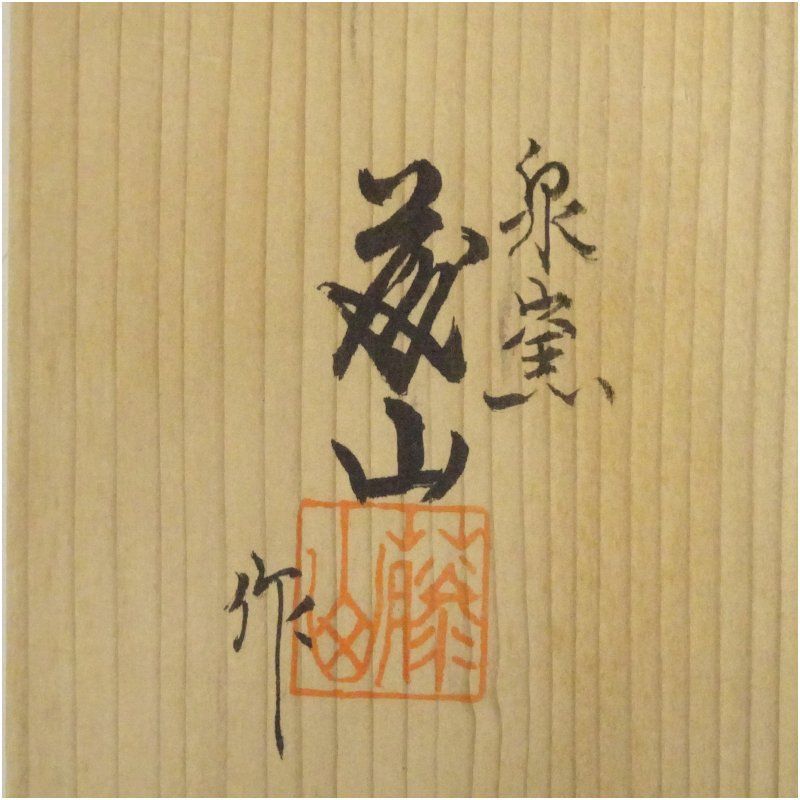 泉窯
藤山
作
藤